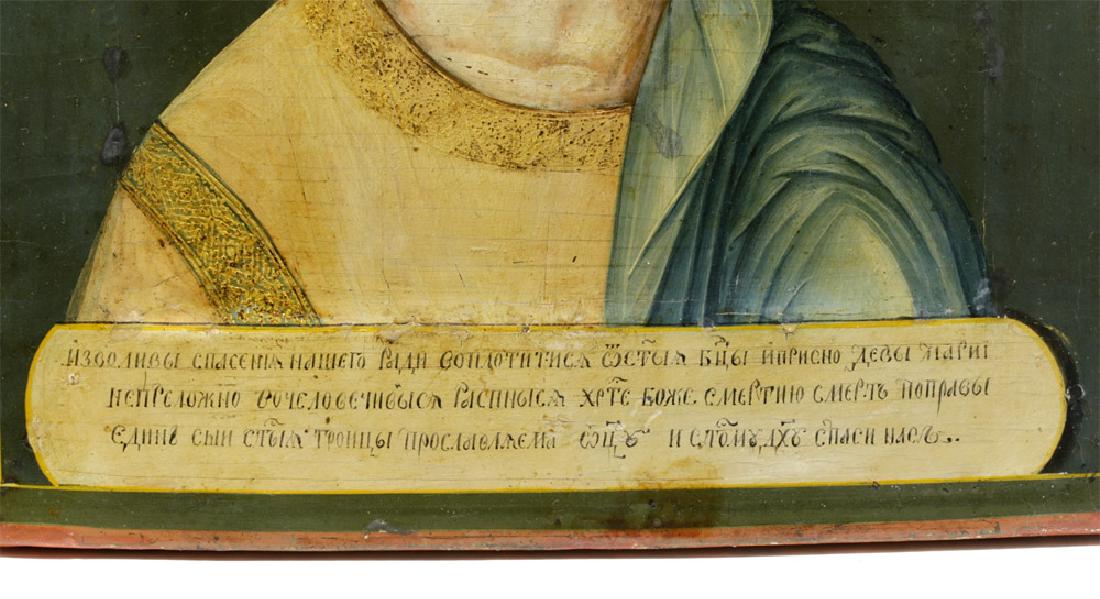 изволивы спасения нашего ради воплотитися ѿ стыя бцы и присно девы марии
непреложно вочеловечивыся распныися хрте боже смертию смерть поправы
един сыи стыя троицы прославляемы ѿцу и стому дху спаси насъ..